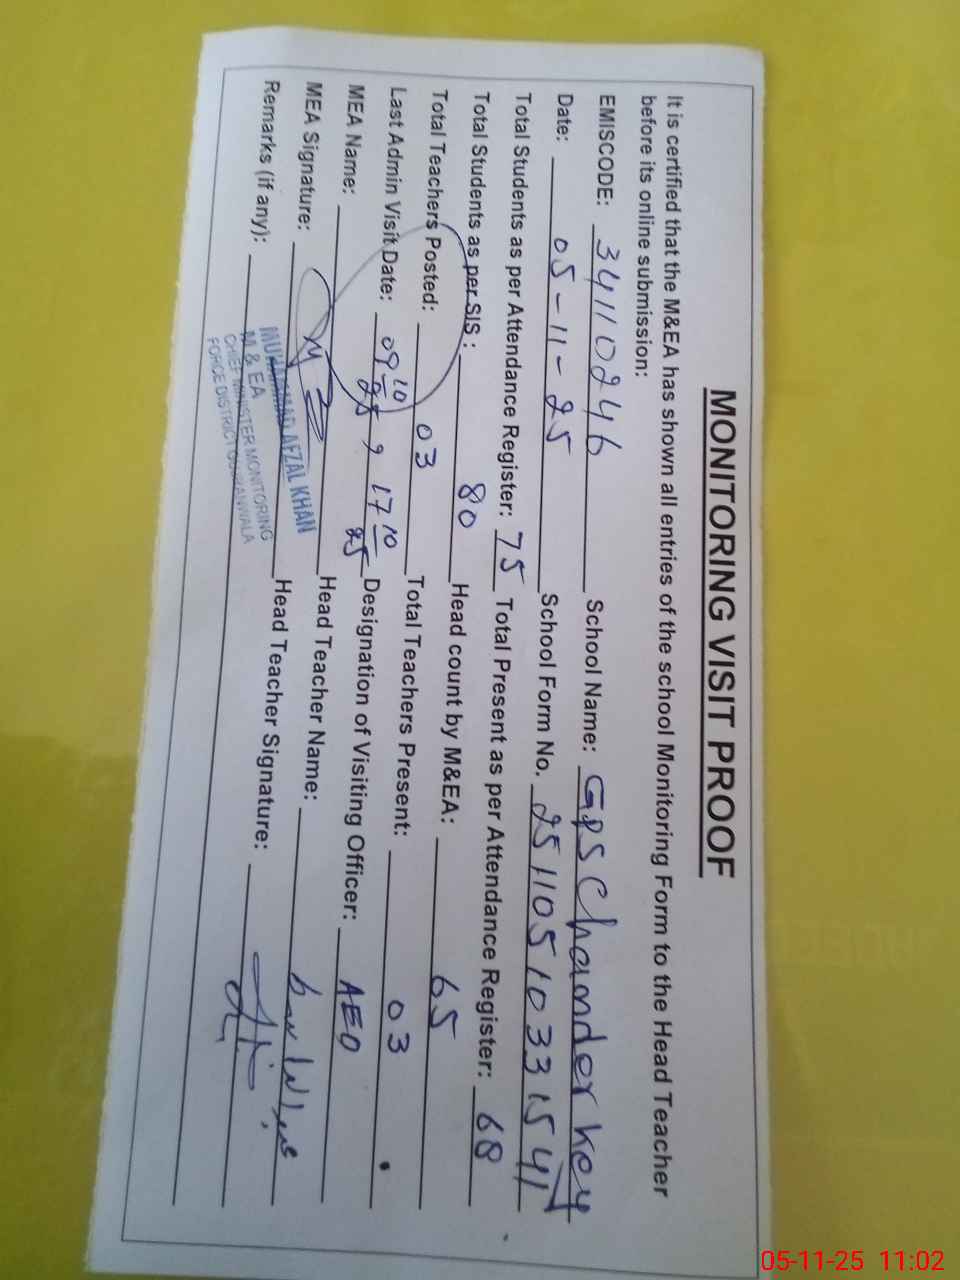 MONITORING VISIT PROOF
It is certified that the M&EA has shown all entries of the school Monitoring Form to the Head Teacher
before its online submission:
EMISCODE: 34110246 School Name: GPS Chaonder Key
Date: 05-11-25 School Form No. 25110510331541
Total Students as per Attendance Register: 75 Total Present as per Attendance Register: 68
Total Students as per SIS: 80 Head count by M&EA: 65
Total Teachers Posted: 03 Total Teachers Present: 03
Last Admin Visit Date: 09 10 25, 17 10 25 Designation of Visiting Officer: AEO
MEA Name: Head Teacher Name:
MEA Signature: Head Teacher Signature:
Remarks (if any):
MUHAMMAD AFZAL KHAN
M & EA
CHIEF MINISTER MONITORING
FORCE DISTRICT GUJRANWALA
05-11-25 11:02